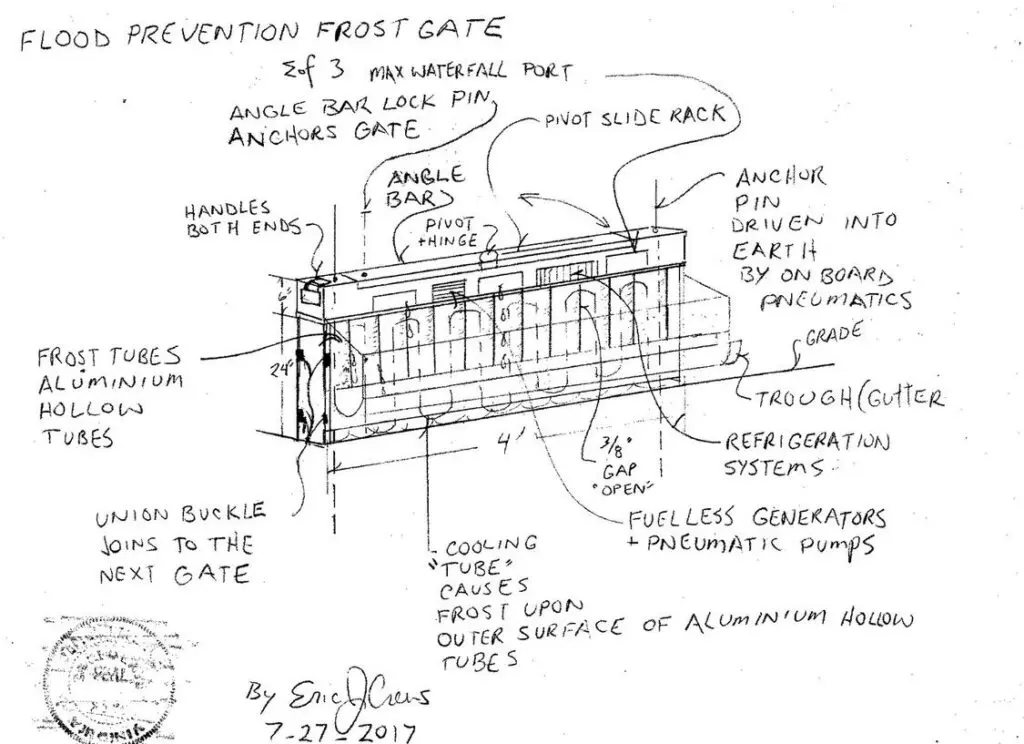 FLOOD PREVENTION FROST GATE
2 of 3 MAX WATERFALL PORT
ANGLE BAR LOCK PIN
ANCHORS GATE
PIVOT SLIDE RACK
ANGLE
BAR
PIVOT
+HINGE
HANDLES
BOTH ENDS
ANCHOR
PIN
DRIVEN INTO
EARTH
BY ON BOARD
PNEUMATICS
6"
24"
GRADE
FROST TUBES
ALUMINIUM
HOLLOW
TUBES
TROUGH/GUTTER
4'
3/8"
GAP
"OPEN"
REFRIGERATION
SYSTEMS
UNION BUCKLE
JOINS TO THE
NEXT GATE
FUELLESS GENERATORS
+ PNEUMATIC PUMPS
- COOLING
"TUBE"
CAUSES
FROST UPON
OUTER SURFACE OF ALUMINIUM HOLLOW
TUBES
By Eric J Crews
7-27-2017